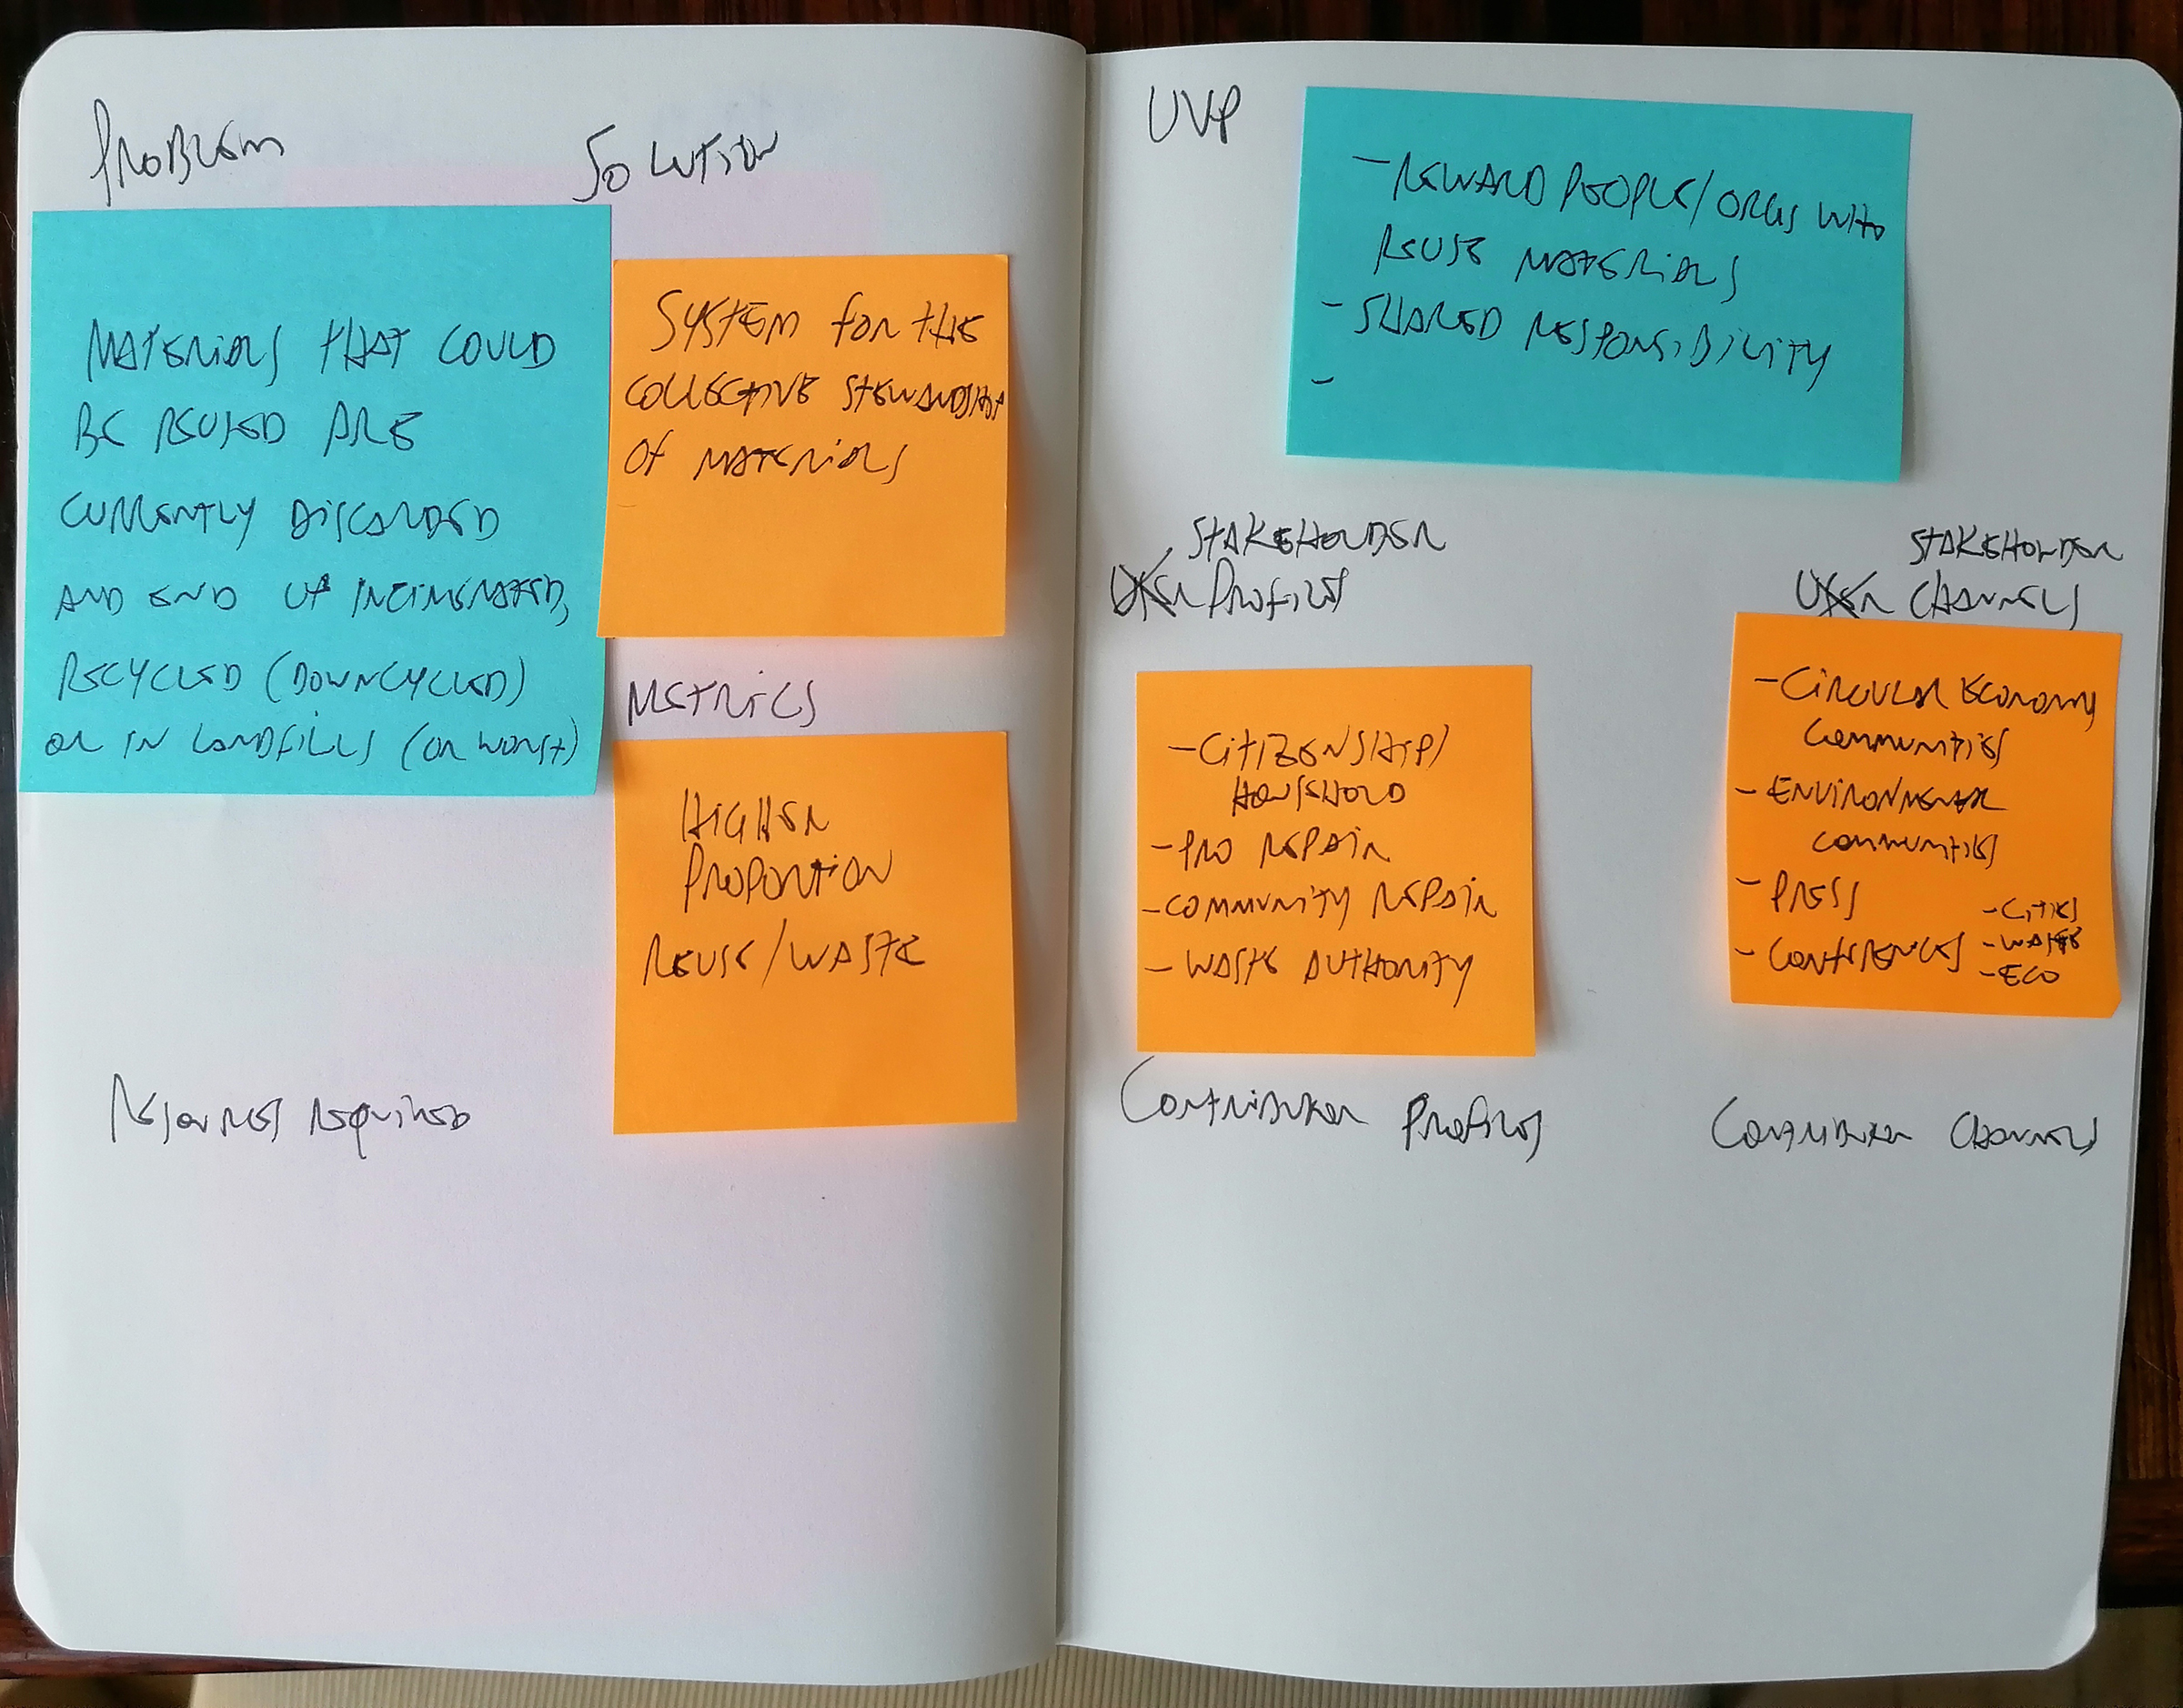 PROBLEM
MATERIALS THAT COULD
BE REUSED ARE
CURRENTLY DISCARDED
AND END UP INCINERATED,
RECYCLED (DOWNCYCLED)
OR IN LANDFILLS (OR WORST)
SOLUTION
SYSTEM FOR THE
COLLECTIVE STEWARDSHIP
OF MATERIALS
METRICS
HIGHER
PROPORTION
REUSE/WASTE
RESOURCES REQUIRED
UVP
- REWARD PEOPLE/ORGS WHO
REUSE MATERIALS
- SHARED RESPONSIBILITY
-
STAKEHOLDER
USER PROFILES
- CITIZENSHIP/
HOUSHOLD
- PRO REPAIR
- COMMUNITY REPAIR
- WASTE AUTHORITY
STAKEHOLDER
USER CHANNELS
- CIRCULAR ECONOMY
COMMUNITIES
- ENVIRONMENTAL
COMMUNITIES
- PRESS
- CONFERENCES
- CITIES
- WASTE
- ECO
CONTRIBUTOR PROFILES
CONTRIBUTOR CHANNELS